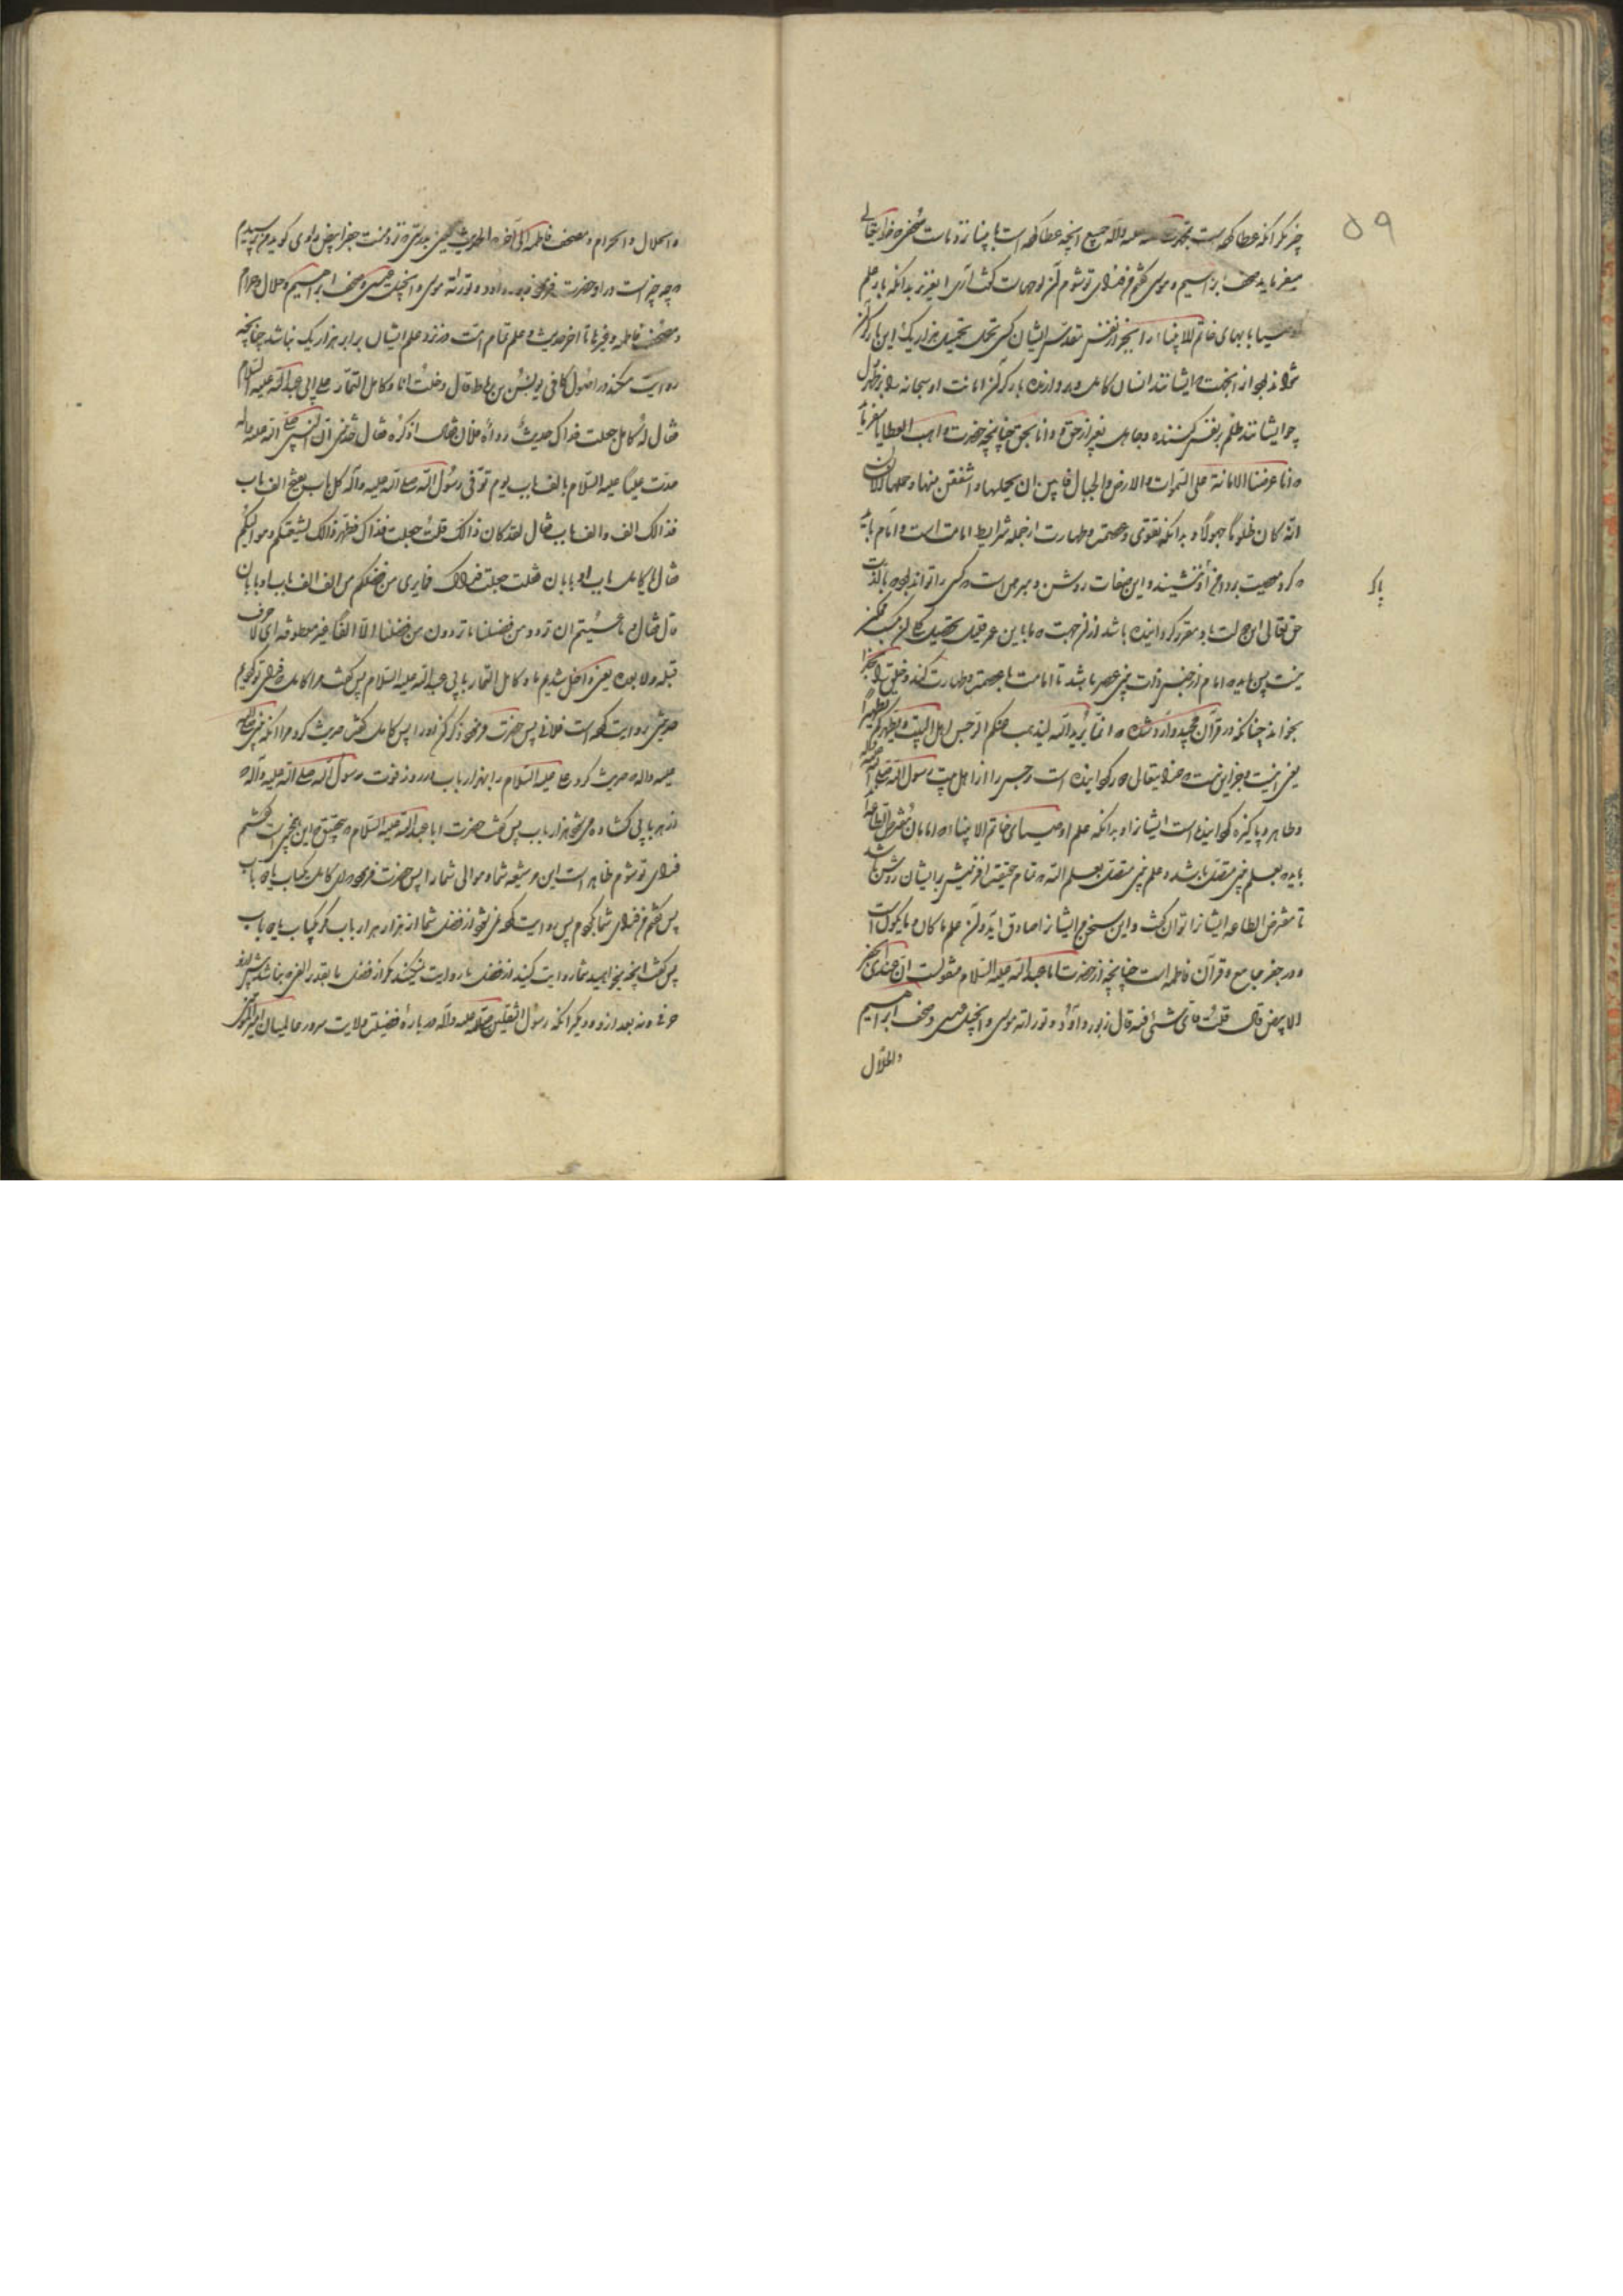 ۵۹
چیز مکر آنکه عطا کرده است بحضرت صلی علیه وآله جمیع آنچه عطا کرده است بانبیا و نزد ماست صحفی که خدایتعالی
میفرماید صحف ابراهیم و موسی گفتم من فدای تو شوم آن الواحست گفت آری ای عزیز بدانکه بار علم
اوصیا یا بهای خاتم الانبیاء را بجز از نفس مقدس ایشان کسی تحمل تحمیل هزار یک این بار گران
نتواند بود از اینجهت ایشانند انسان کامل و بردارنده بار گران امانت او سبحانه
چرا ایشانند ظلم بر نفس کننده و جاهل بغیر از حق و دانا بحق چنانچه حضرت واهب العطایا میفرماید
انا عرضنا الامانة علی السموات والارض والجبال فابین ان یحملنها واشفقن منها وحملها الانسان
انه کان ظلوما جهولا و بدانکه تقوی و عصمت و طهارت از جمله شرایط امامت است و امام باید
که کرد معصیت بر دامن او ننشیند و این صفات روشن و مبرهن است که کسی را تواند بود که بالذات
پاک
حق تعالی این حالت باو مقرر گردانیده باشد از آن جهت که ما باین عمر قلیل تحصیل کمالات ممکن
نیست پس باید که امام از جنس ذات نبی عصر باشد تا امامت با عصمت و طهارت کند و خلق را بخدا
بخواند چنانکه در قرآن مجید وارد شده که انما یرید الله لیذهب عنکم الرجس اهل البیت ویطهرکم تطهیرا
یعنی اینست و جز این نیست که خدایتعالی دور گردانیده است رجس را از اهل بیت رسول الله صلی الله علیه
وطاهر و پاکیزه گردانیده است ایشانرا و بدانکه علم اوصیای خاتم الانبیا که امامان مفترض الطاعه‌اند
باید بعلم نبی متصل باشد و علم نبی متصل بعلم الله که تمام حقیقت آفرینش بر ایشان روشن باشد
تا مفترض الطاعه ایشانرا توان گفت و این سخن بر ایشان صادق آید و آن علم ما کان و ما یکون است
و در جفر جامع و قرآن فاطمه است چنانچه از حضرت ابا عبدالله علیه السلام منقولست ان عندی الجفر
الابیض قال قلت فای شیء فیه قال زبور داود و توراة موسی وانجیل عیسی وصحف ابراهیم
والحلال
والحلال والحرام ومصحف فاطمه الی آخره الحدیث یعنی بدرستی که نزد منست جفر ابیض راوی گوید من پرسیدم
که چه چیز است در او حضرت فرمود زبور داود و توراة موسی وانجیل عیسی وصحف ابراهیم و حلال و حرام
ومصحف فاطمه و غیرها تا آخر حدیث و علم تمام امت در نزد علم ایشان برابر هزار یک نباشد چنانچه
روایت میکند در اصول کافی یونس بن رباط قال دخلت انا وکامل التمار علی ابی عبدالله علیه السلام
فقال له کامل جعلت فداک حدیث رواه فلان فقال اذکره فقال حدثنی ان النبی صلی الله علیه وآله
حدث علیا علیه السلام بالف باب یوم توفی رسول الله صلی الله علیه وآله کل باب یفتح الف باب
فذالک الف والف باب فقال لقد کان ذالک قلت جعلت فداک فظهر ذالک لشیعتکم وموالیکم
فقال یا کامل باب او بابان فقلت جعلت فداک فما یروی من فضلکم من الف الف باب الا باب او بابان
قال فقال وما عسیتم ان تروو من فضلنا ما تروون من فضلنا الا الفا غیر معطوفه ای لا حرف
قبله ولا بعده یعنی داخل شدیم ما و کامل التمار بابی عبدالله علیه السلام پس گفت مر او را کامل که فدای تو گردم
حدیثی روایت کرده است فلانی پس حضرت فرمود ذکر کن او را پس کامل گفت حدیث کرد مرا آنکه نبی صلی الله
علیه وآله حدیث کرد علی علیه السلام را بهزار باب در روز فوت رسول الله صلی الله علیه وآله که
از هر بابی گشاده میشود هزار باب پس گفت حضرت ابا عبدالله علیه السلام که بتحقیق این چنین است گفتم
فدای تو شوم ظاهر است این مر شیعه شما و موالی شما را پس حضرت فرمود ای کامل یکباب یا دو باب
پس گفتم من فدای شما گردم پس روایت کرده نمی‌شود از فضل شما از هزار هزار باب مگر یکباب یا دو باب
پس گفت آنچه میخواهید شما روایت کنید از فضل ما روایت نمیکنید مگر از فضل ما بقدر الفی که نباشد پیش از او
حرفی و نه بعد از او و دیگر آنکه رسول الثقلین صلی الله علیه وآله در باره فضیلت ولایت سرور عالمیان امیرالمؤمنین